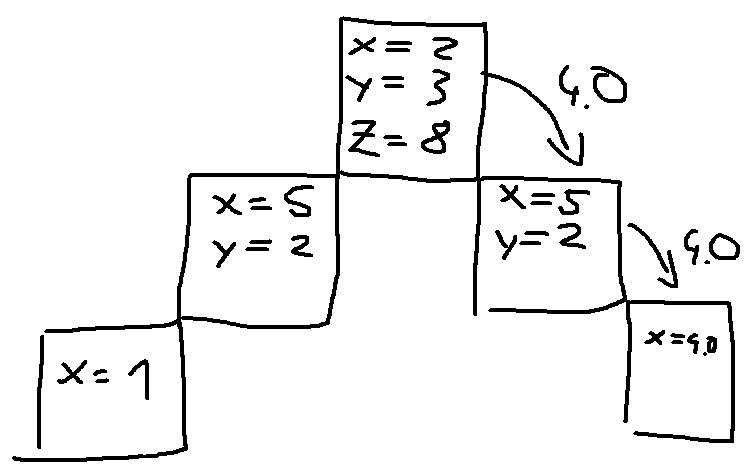 x = 2
y = 3
z = 8
4.0
x = 5
y = 2
x = 5
y = 2
4.0
x = 1
x = 4.0